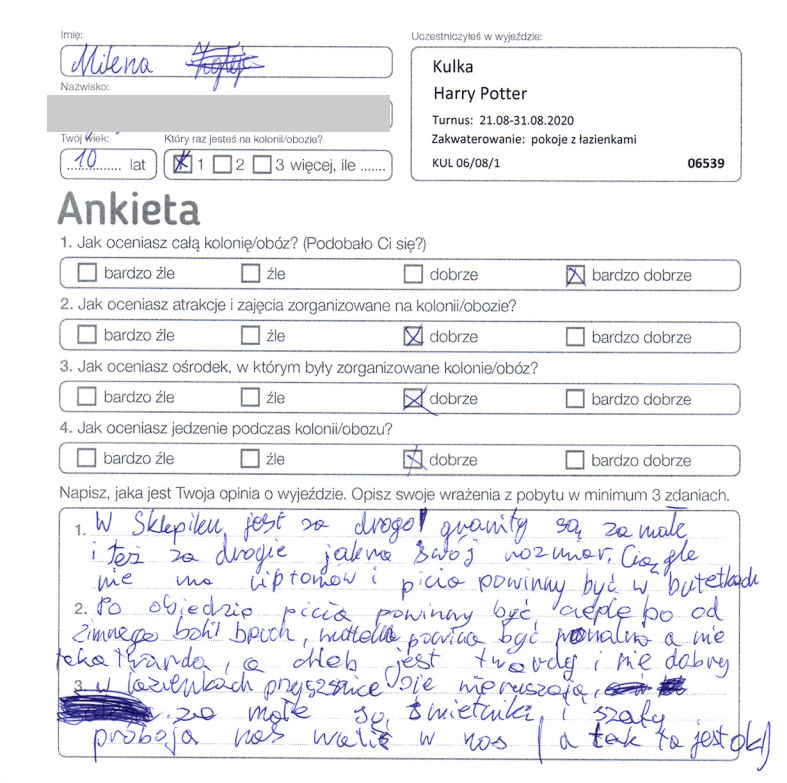 Imię:
Uczestniczyłeś w wyjeździe:
Milena
Kulka
Harry Potter
Nazwisko:
Turnus: 21.08-31.08.2020
Zakwaterowanie: pokoje z łazienkami
KUL 06/08/1 06539
Twój wiek: Który raz jesteś na kolonii/obozie?
10 lat 1 2 3 więcej, ile .......
Ankieta
1. Jak oceniasz całą kolonię/obóz? (Podobało Ci się?)
bardzo źle źle dobrze bardzo dobrze
2. Jak oceniasz atrakcje i zajęcia zorganizowane na kolonii/obozie?
bardzo źle źle dobrze bardzo dobrze
3. Jak oceniasz ośrodek, w którym były zorganizowane kolonie/obóz?
bardzo źle źle dobrze bardzo dobrze
4. Jak oceniasz jedzenie podczas kolonii/obozu?
bardzo źle źle dobrze bardzo dobrze
Napisz, jaka jest Twoja opinia o wyjeździe. Opisz swoje wrażenia z pobytu w minimum 3 zdaniach.
1. W Sklepiku jest za drogo granity są za małe
i też za drogie jak na swój rozmiar. Ciągle
nie ma liptonów i picia powinny być w butelkach
2. Po obiedzie picia powinny być ciepłe bo od
zimnego boli brzuch, nutella powina być normalna a nie
taka twarda, a chleb jest twardy i nie dobry
3. w łazienkach prysznice się nie ruszają,
za małe są śmietniki i szafy
próboją nas walić w nos (a tak to jest ok)